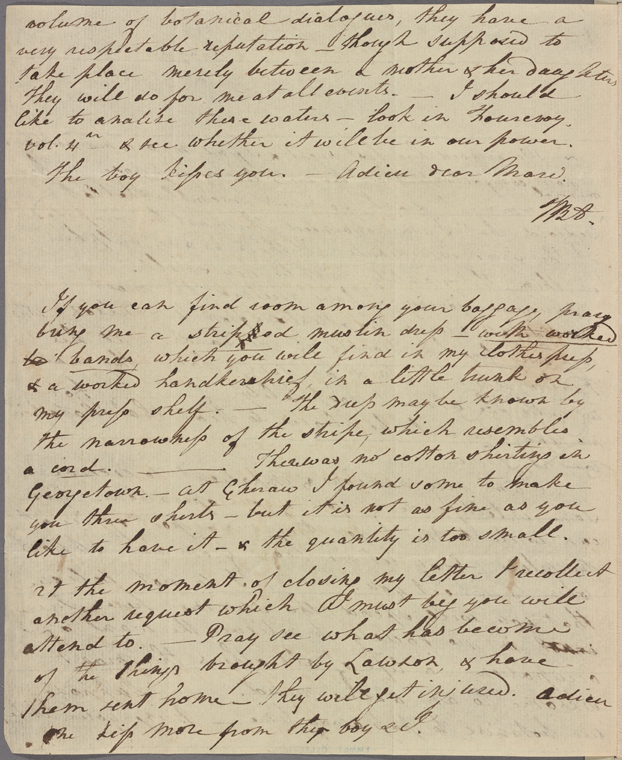 volume of botanical dialogues, they have a
very respectable reputation – though supposed to
take place merely between a mother & her daughters
They will do for me at all events. — I should
like to analise these waters – look in Fourcroy,
vol. 4th & see whether it will be in our power.
The boy kisses you. – Adieu dear Mass.
If you can find room among your baggage, pray
bring me a striped muslin dress – with worked
bands, which you will find in my clothes press,
& a worked handkerchief, in a little trunk on
my press shelf. — The dress may be known by
the narrowness of the stripe, which resembles
a cord. — There was no cotton shirting in
Georgetown. – at Cheraw I found some to make
you three shirts – but it is not as fine as you
like to have it – & the quantity is too small.
At the moment of closing my letter I recollect
another request which I must beg you will
attend to. — Pray see what has become
of the things brought by Lawson, & have
them sent home – they will get injured. adieu
One kiss more from the boy & I.